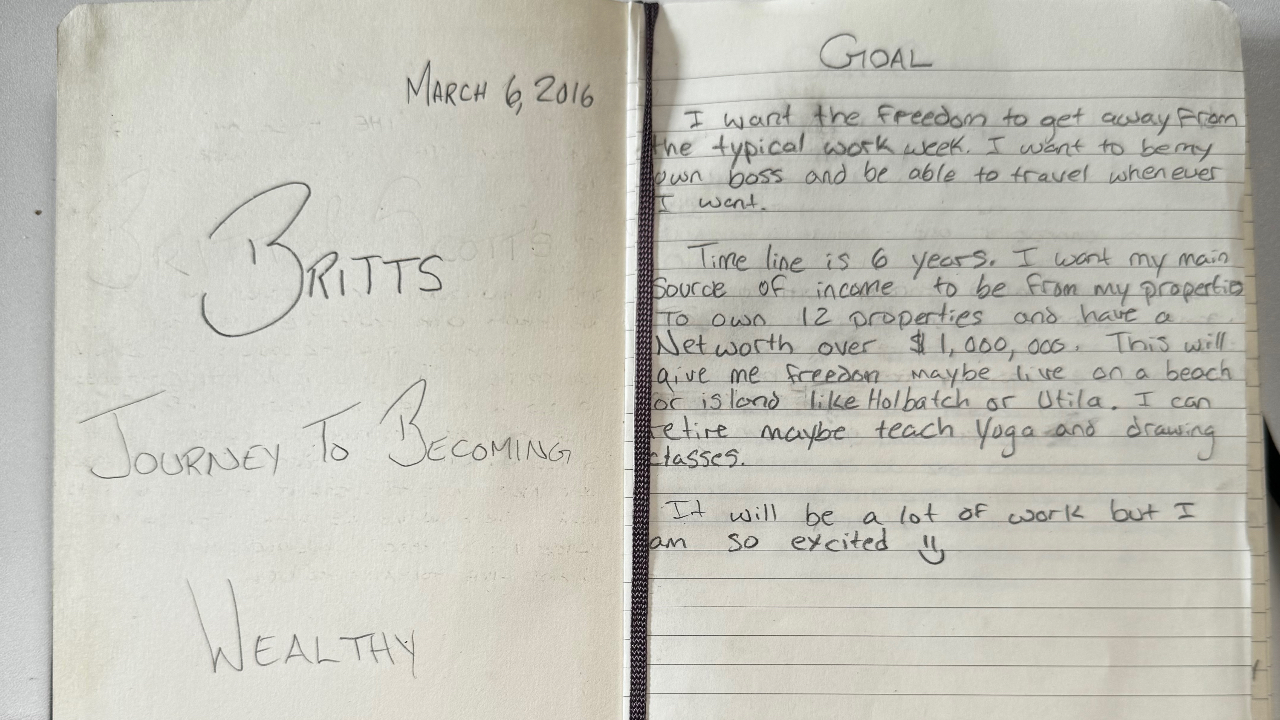 MARCH 6, 2016
BRITTS
JOURNEY TO BECOMING
WEALTHY
GOAL
I want the freedom to get away from
the typical work week. I want to be my
own boss and be able to travel whenever
I want.
Time line is 6 years. I want my main
source of income to be from my propertie
To own 12 properties and have a
Net worth over $1,000,000. This will
give me freedom maybe live on a beach
or island like Holbatch or Utila. I can
retire maybe teach Yoga and drawing
classes.
It will be a lot of work but I
am so excited